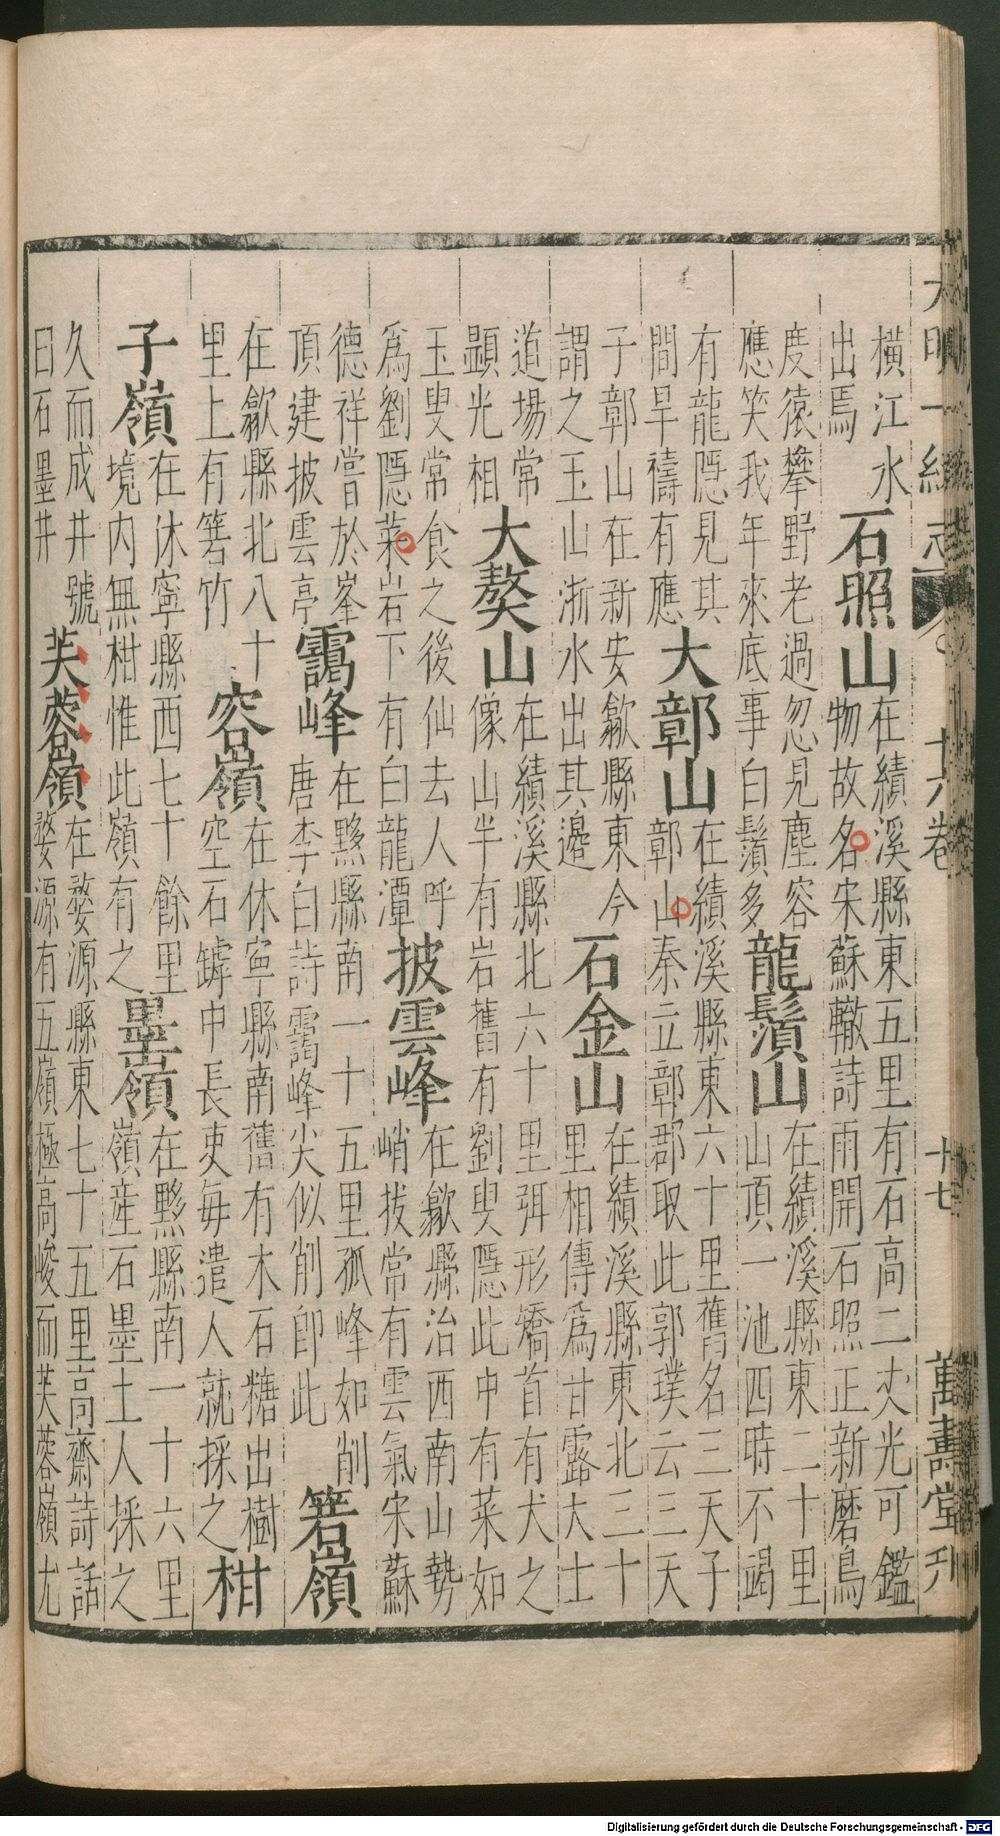 大明一統志 十六卷 十七 萬壽堂刋
橫江水
出焉
石照山
在績溪縣東五里有石高二丈光可鑑
物故名宋蘇轍詩雨開石照正新磨鳥
度猿攀野老過忽見塵容
應笑我年來底事白鬚多
龍鬚山
在績溪縣東二十里
山頂一池四時不竭
有龍隱見其
間旱禱有應
大鄣山
在績溪縣東六十里舊名三天子
鄣山秦立鄣郡取此郭璞云三天
子鄣山在新安歙縣東今
謂之玉山浙水出其邊
石金山
在績溪縣東北三十
里相傳為甘露大士
道場常
顯光相
大獒山
在績溪縣北六十里弭形矯首有犬之
像山半有岩舊有劉叟隱此中有菜如
玉叟常食之後仙去人呼
為劉隱菜岩下有白龍潭
披雲峰
在歙縣治西南山勢
峭拔常有雲氣宋蘇
德祥嘗於峯
頂建披雲亭
靄峰
在黟縣南一十五里孤峰如削
唐李白詩靄峰尖似削卽此
箬嶺
在歙縣北八十
里上有箬竹
容嶺
在休寧縣南舊有木石糖出樹
空石罅中長吏每遣人就採之
柑
子嶺
在休寧縣西七十餘里
境內無柑惟此嶺有之
墨嶺
在黟縣南一十六里
嶺産石墨土人採之
久而成井號
曰石墨井
芙蓉嶺
在婺源縣東七十五里高齋詩話
婺源有五嶺極高峻而芙蓉嶺尤
Digitalisierung gefördert durch die Deutsche Forschungsgemeinschaft - DFG